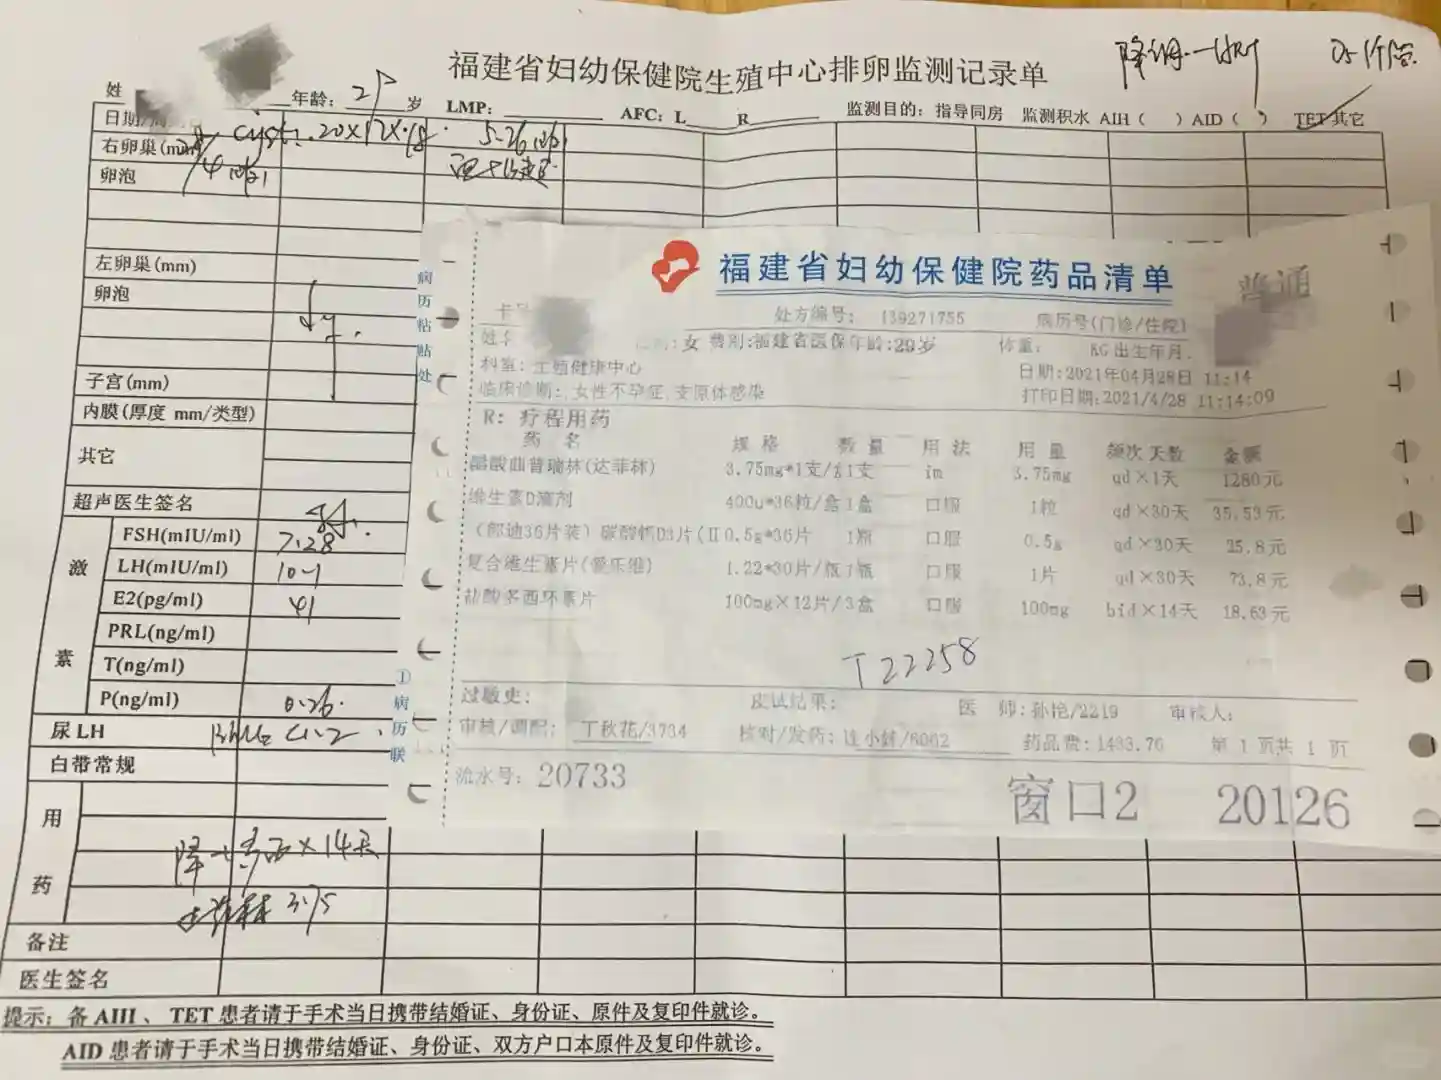 福建省妇幼保健院生殖中心排卵监测记录单
姓 年龄: 岁 LMP: AFC: L R 监测目的: 指导同房 监测积水 AIH ( ) AID ( ) TET 其它
日期/周
cyst: 20×17×18
5-26
右卵巢(mm)
卵泡
左卵巢(mm)
卵泡
子宫(mm)
内膜(厚度 mm/类型)
其它
超声医生签名
激素
FSH(mIU/ml) 7.28
LH(mIU/ml) 10-1
E2(pg/ml) 41
PRL(ng/ml)
T(ng/ml)
P(ng/ml) 0.26
尿LH
白带常规
用药
×14天
3.75
备注
医生签名
提示: 备 AIH 、 TET 患者请于手术当日携带结婚证、身份证、原件及复印件就诊。
AID 患者请于手术当日携带结婚证、身份证、双方户口本原件及复印件就诊。
病历粘贴处
①病历联
福建省妇幼保健院药品清单
普通
卡号
处方编号: 139271755
病历号(门诊/住院)
姓名 :女 费别:福建省医保 年龄:29岁 体重: KG 出生年月.
科室: 生殖健康中心
日期:2021年04月28日 11:14
临床诊断:, 女性不孕症, 支原体感染
打印日期:2021/4/28 11:14:09
R: 疗程用药
药 名 规 格 数 量 用 法 用 量 频次 天数 金额
醋酸曲普瑞林(达菲林) 3.75mg*1支/盒1支 im 3.75mg qd×1天 1280元
维生素D滴剂 400u*36粒/盒1盒 口服 1粒 qd×30天 35.53元
(朗迪36片装) 碳酸钙D3片(II 0.5g*36片 1瓶 口服 0.5g qd×30天 25.8元
复合维生素片(爱乐维) 1.22*30片/瓶1瓶 口服 1片 qd×30天 73.8元
盐酸多西环素片 100mg×12片/3盒 口服 100mg bid×14天 18.63元
T22258
过敏史: 皮试结果: 医 师:孙艳/2219 审核人:
审核/调配: 丁秋花/3734 核对/发药: 连小妹/6062 药品费:1433.76 第 1 页共 1 页
流水号: 20733
窗口2 20126